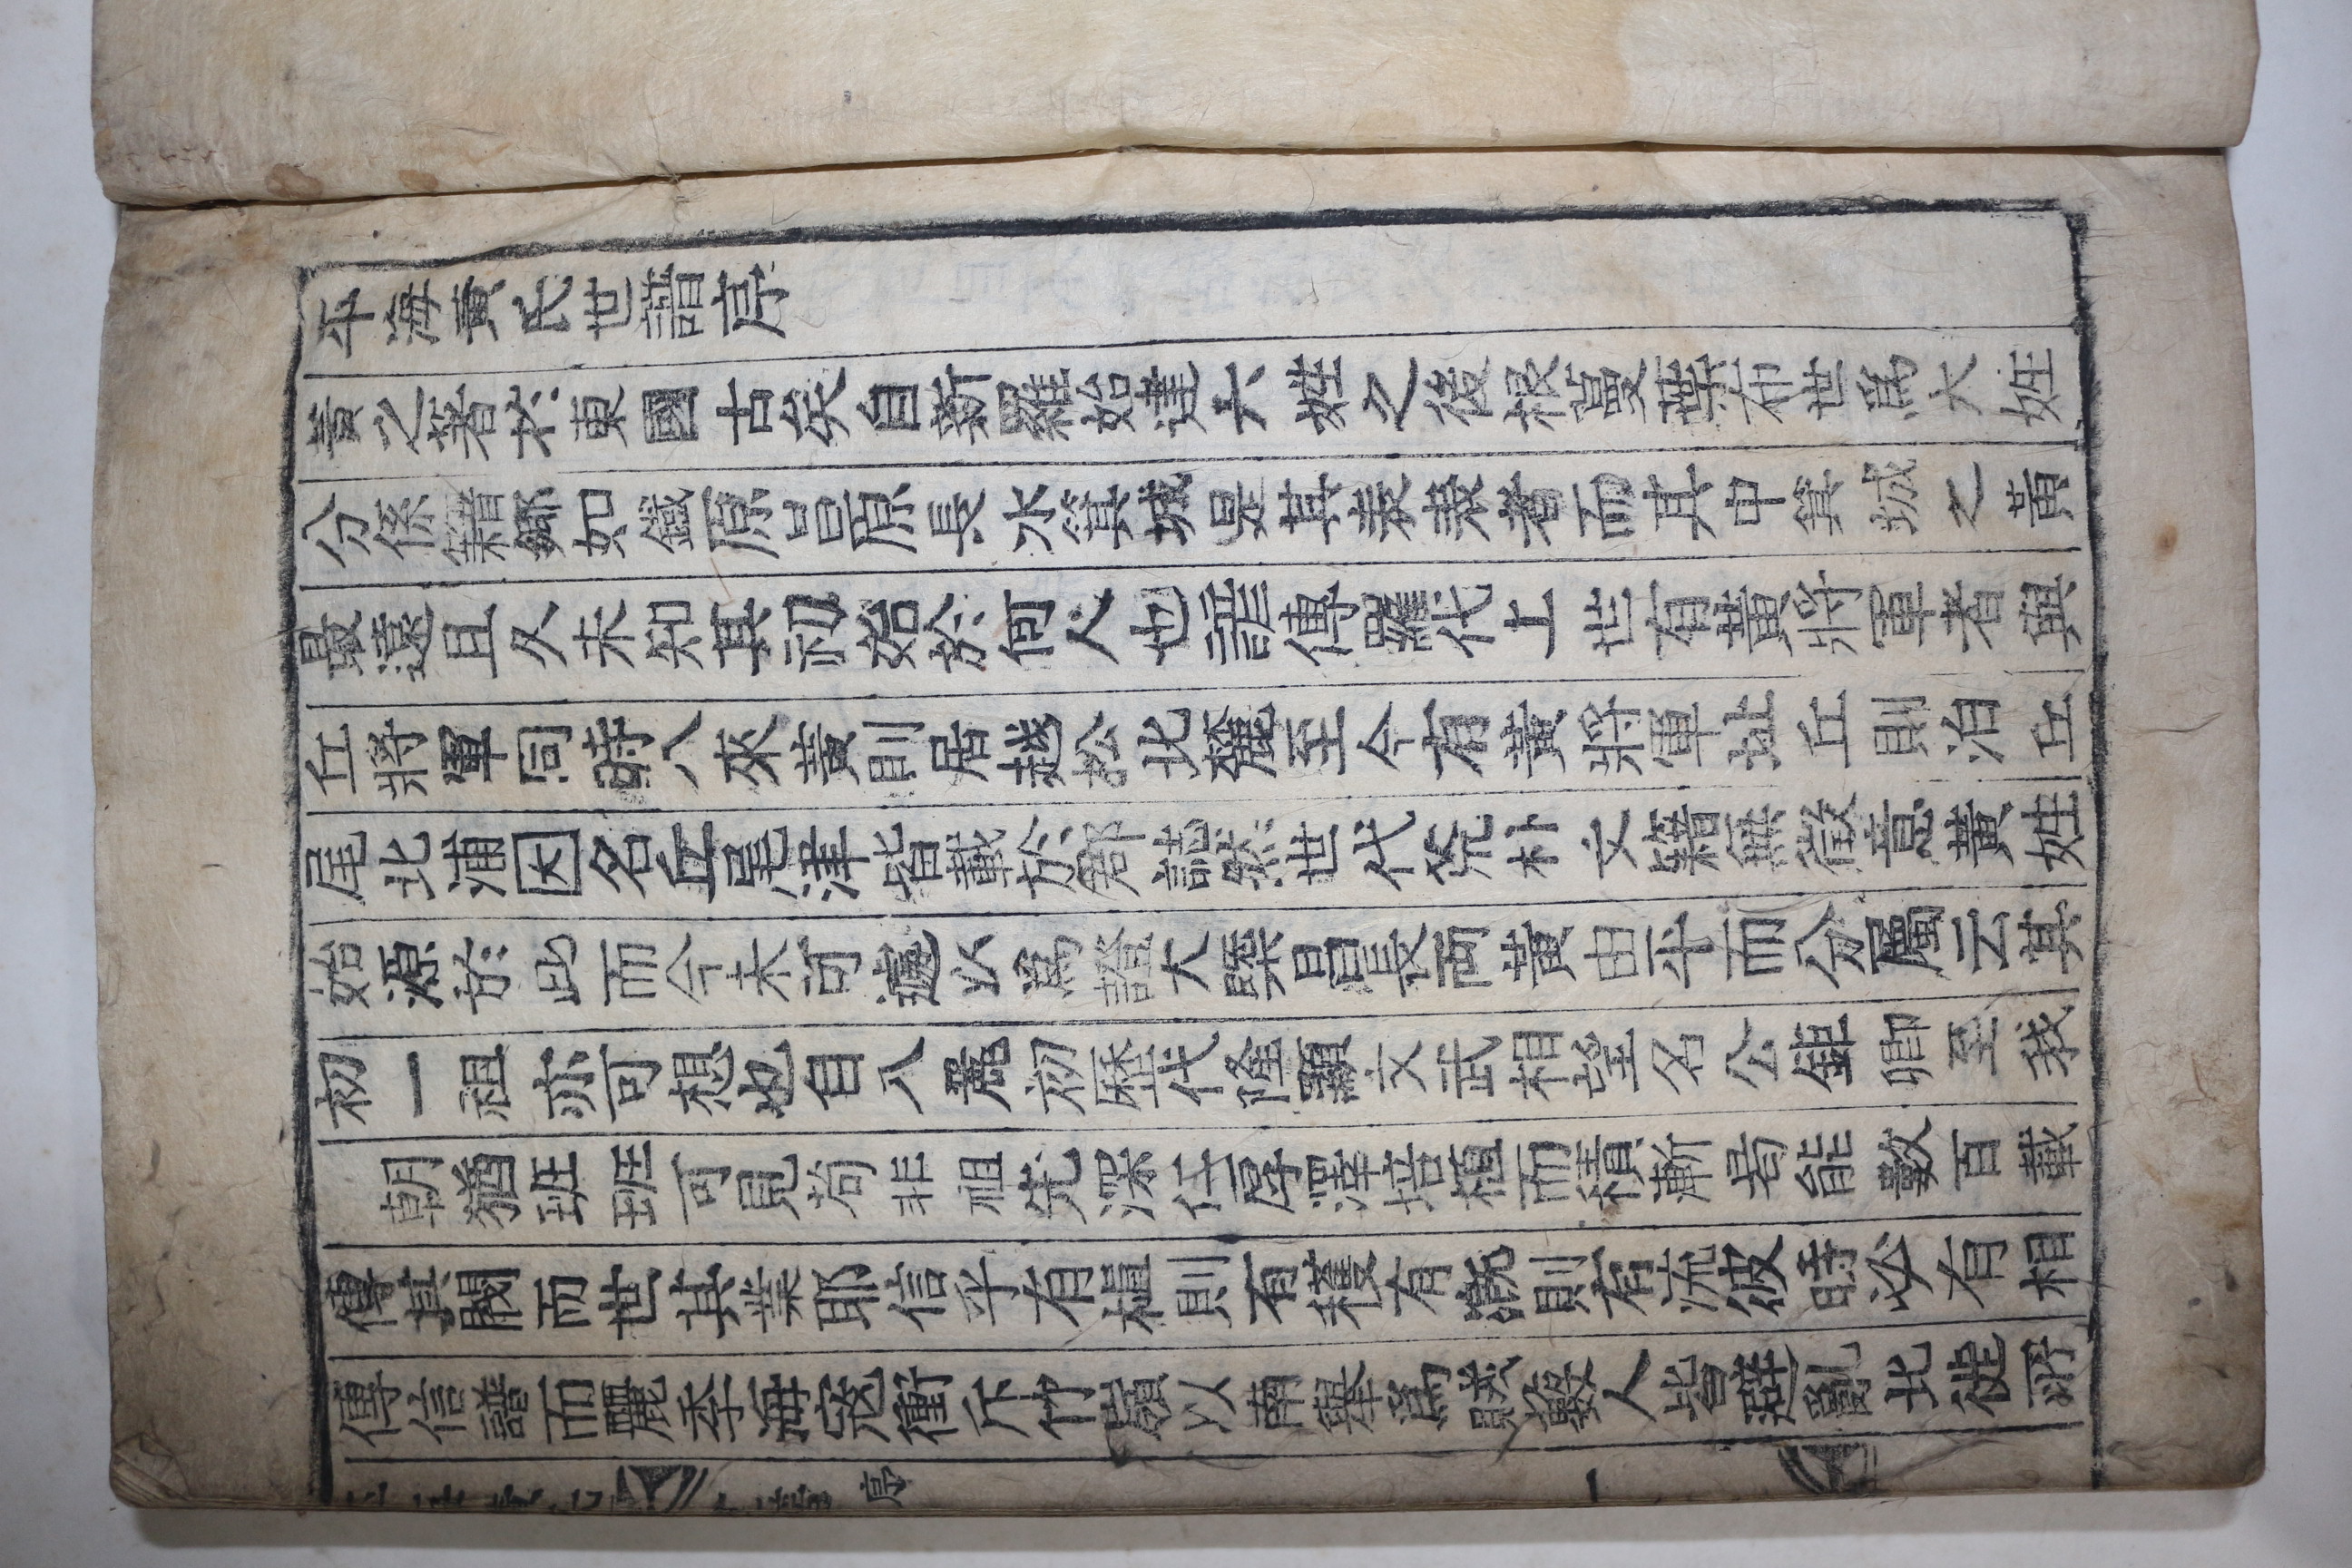 平海黃氏世譜序
黃之著於東國古矣自新羅始建六姓之後根蔓葉布世爲大姓
分係籍鄉如鐵原昌原長水箕城是其表表者而其中箕城之黃
最遠且久未知其初始於何人也諺傳羅代上世有黃將軍者與
丘將軍同時入來黃則居越松北麓至今有黃將軍址丘則泊丘
尾北浦因名丘尾津皆載於郡誌然世代荒朴文籍無徵意黃姓
始源於此而今未可遽以爲證大槩昌長両黃由平而分屬云其
初一祖亦可想也自入麗初歷代隆顯文武相望名公鉅卿至我
朝猶班班可見苟非祖先深仁厚澤培植而積漸曷能數百載
傳其閥而世其業耶信乎有植則有穫有漑則有流彼時必有相
傳信譜而麗季海寇衝斥竹嶺以南擧爲賊藪人皆避亂北徙所
序
一